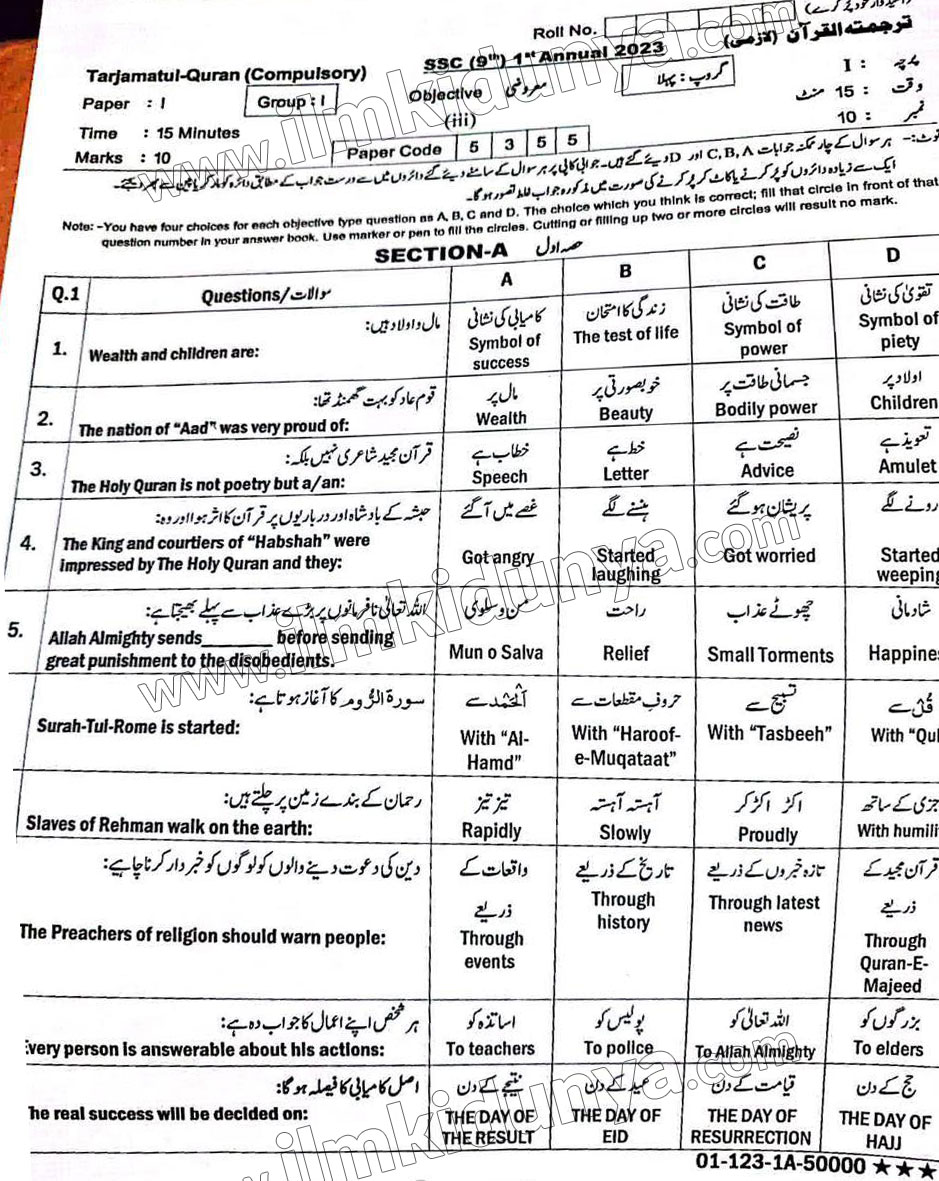 (امیدوار خود پُر کرے)
Roll No.
ترجمتہ القرآن (لازمی)
SSC (9th) 1st Annual 2023
Tarjamatul-Quran (Compulsory)
پرچہ : I
گروپ : پہلا
معروضی
Objective
Group : I
Paper : I
وقت : 15 منٹ
(iii)
نمبر : 10
Time : 15 Minutes
Paper Code 5 3 5 5
Marks : 10
نوٹ:- ہر سوال کے چار ممکنہ جوابات C, B, A اور D دیے گئے ہیں۔ جوابی کاپی پر ہر سوال کے سامنے دیے گئے دائروں میں سے درست جواب کے مطابق دائرہ کو مارکر یا پین سے بھر دیجئے۔
ایک سے زیادہ دائروں کو پُر کرنے یا کاٹ کر پُر کرنے کی صورت میں مذکورہ جواب غلط تصور ہو گا۔
Note: -You have four choices for each objective type question as A, B, C and D. The choice which you think is correct; fill that circle in front of that
question number in your answer book. Use marker or pen to fill the circles. Cutting or filling up two or more circles will result no mark.
SECTION-A حصہ اول
Q.1 Questions/سوالات A B C D
مال و اولاد ہیں: کامیابی کی نشانی زندگی کا امتحان طاقت کی نشانی تقویٰ کی نشانی
1. Wealth and children are: Symbol of The test of life Symbol of Symbol of
success power piety
قوم عاد کو بہت گھمنڈ تھا: مال پر خوبصورتی پر جسمانی طاقت پر اولاد پر
2. The nation of "Aad" was very proud of: Wealth Beauty Bodily power Children
قرآن مجید شاعری نہیں بلکہ: خطاب ہے خط ہے نصیحت ہے تعویذ ہے
3. The Holy Quran is not poetry but a/an: Speech Letter Advice Amulet
حبشہ کے بادشاہ اور درباریوں پر قرآن کا اثر ہوا اور وہ: غصے میں آ گئے ہنسنے لگے پریشان ہو گئے رونے لگے
4. The King and courtiers of "Habshah" were Got angry Started Got worried Started
impressed by The Holy Quran and they: laughing weeping
اللہ تعالیٰ نافرمانوں پر بڑے عذاب سے پہلے بھیجتا ہے: من و سلویٰ راحت چھوٹے عذاب شادمانی
5. Allah Almighty sends________ before sending Mun o Salva Relief Small Torments Happines
great punishment to the disobedients.
سورۃ الرُّوم کا آغاز ہوتا ہے: اَلْحَمْد سے حروف مقطعات سے تسبیح سے قُلْ سے
Surah-Tul-Rome is started: With "Al- With "Haroof- With "Tasbeeh" With "Qul
Hamd" e-Muqataat"
رحمان کے بندے زمین پر چلتے ہیں: تیز تیز آہستہ آہستہ اکڑ اکڑ کر جزی کے ساتھ
Slaves of Rehman walk on the earth: Rapidly Slowly Proudly With humili
دین کی دعوت دینے والوں کو لوگوں کو خبردار کرنا چاہیے: واقعات کے تاریخ کے ذریعے تازہ خبروں کے ذریعے قرآن مجید کے
ذریعے Through Through latest ذریعے
The Preachers of religion should warn people: Through history news Through
events Quran-E-
Majeed
ہر شخص اپنے اعمال کا جواب دہ ہے: اساتذہ کو پولیس کو اللہ تعالیٰ کو بزرگوں کو
Every person is answerable about his actions: To teachers To police To Allah Almighty To elders
اصل کامیابی کا فیصلہ ہو گا: نتیجے کے دن عید کے دن قیامت کے دن حج کے دن
The real success will be decided on: THE DAY OF THE DAY OF THE DAY OF THE DAY OF
THE RESULT EID RESURRECTION HAJJ
01-123-1A-50000 ★★★
www.ilmkidunya.com
www.ilmkidunya.com
www.ilmkidunya.com
www.ilmkidunya.com